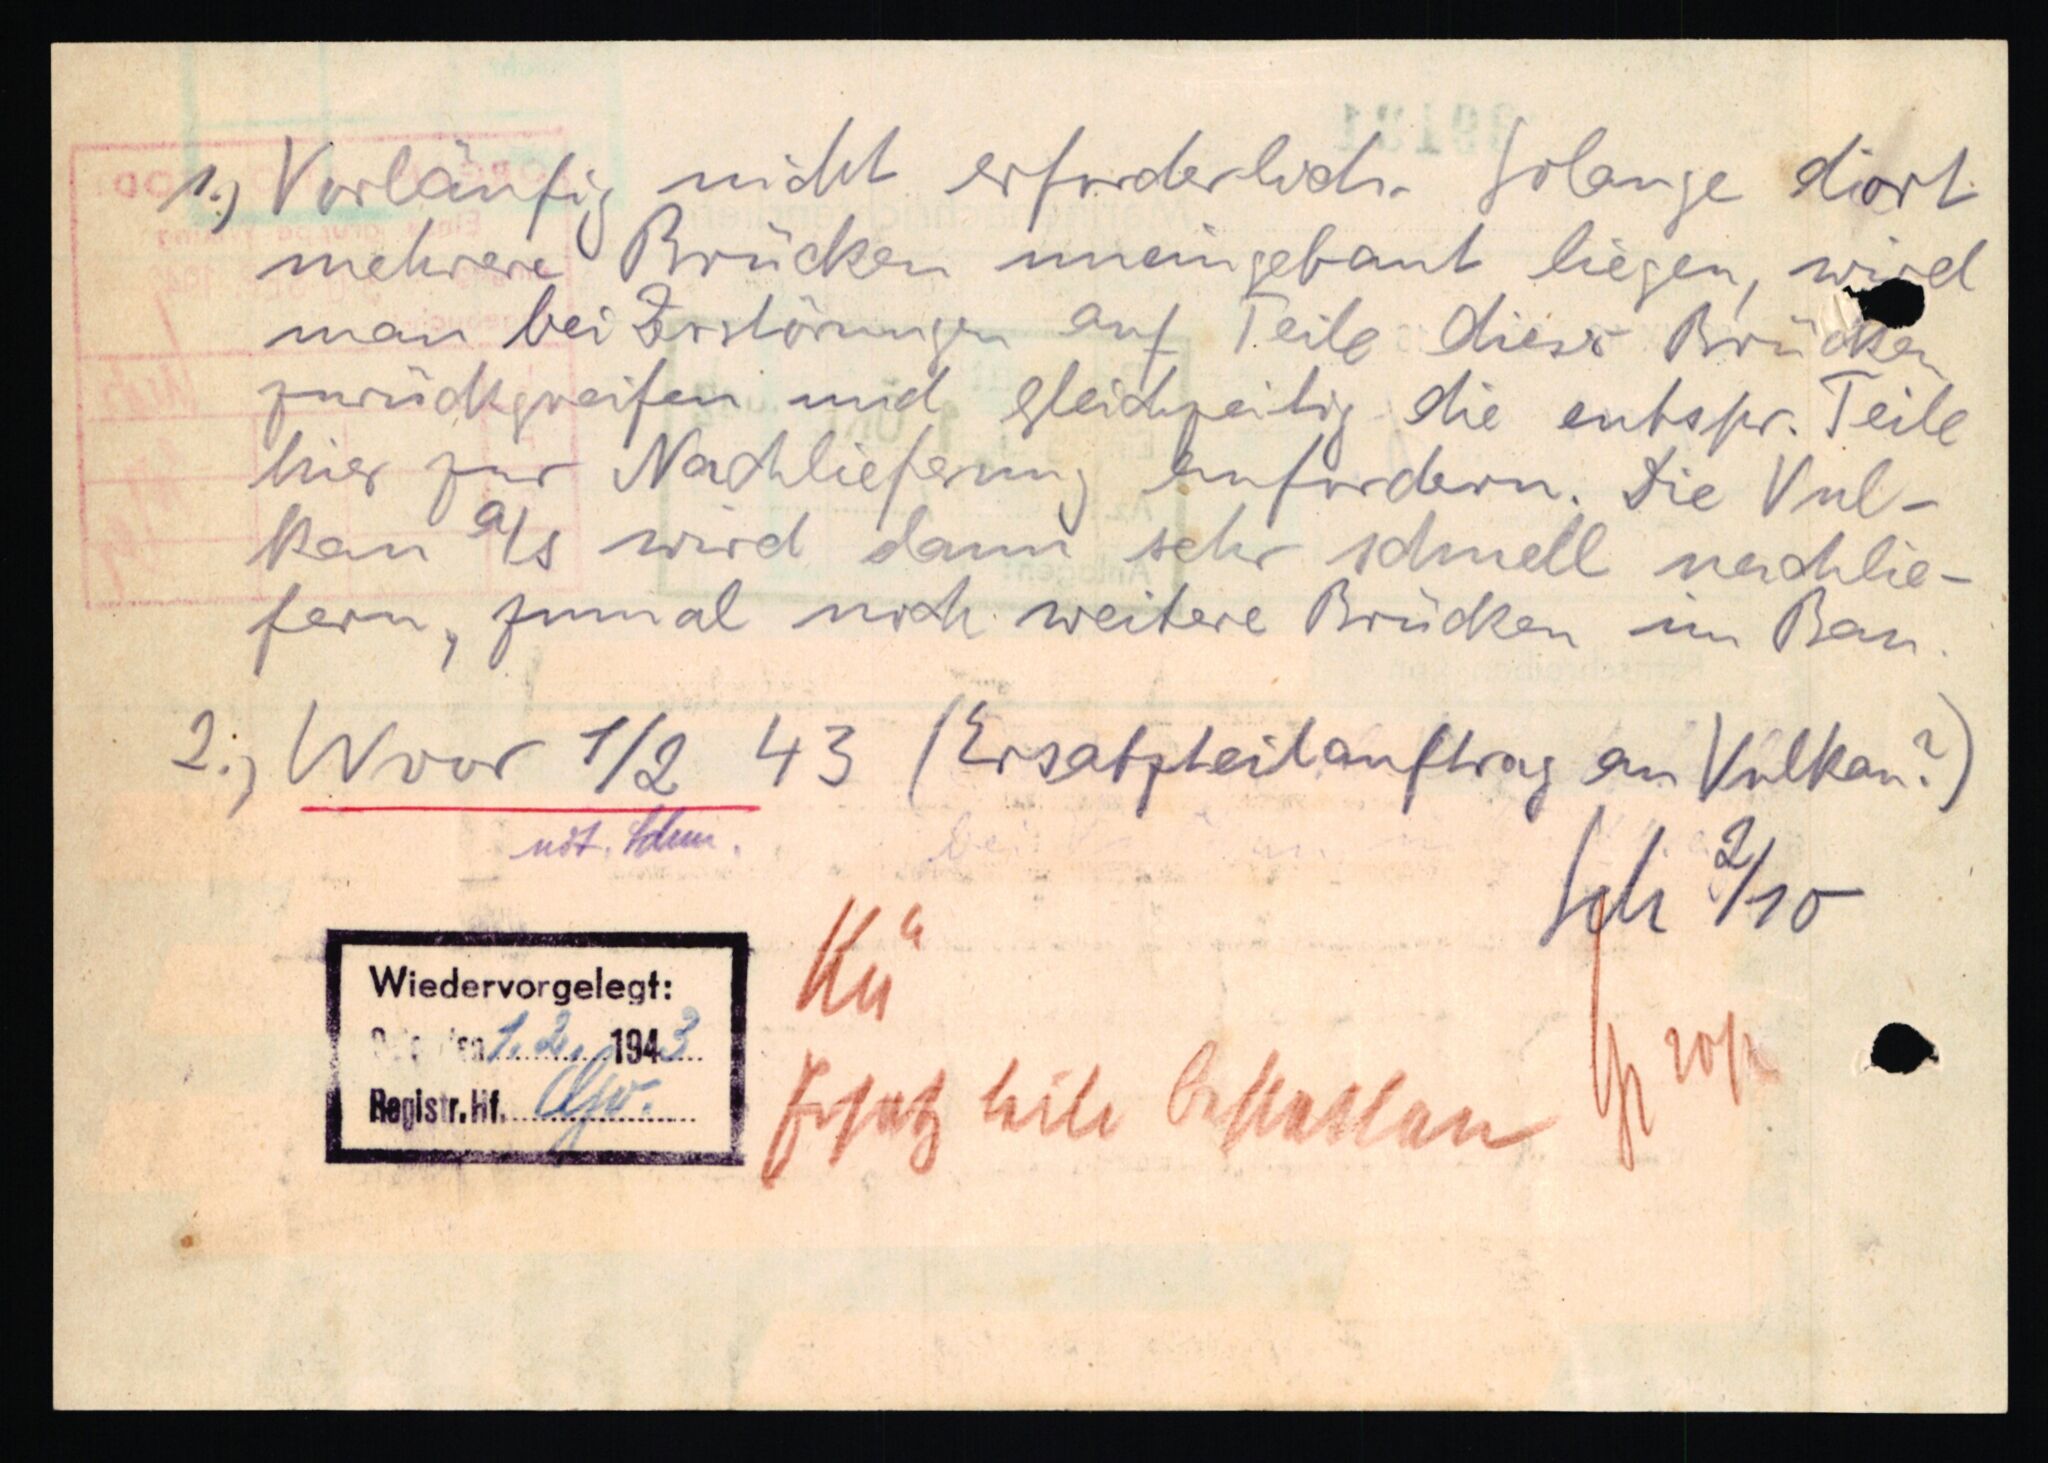 1.) Vorläufig nicht erforderlich. Solange dort
mehrere Brücken uneingebaut liegen, wird
man bei Zerstörungen auf Teile dieser Brücken
zurückgreifen und gleichzeitig die entspr. Teile
hier zur Nachlieferung anfordern. Die Vul-
kan a/s wird dann sehr schnell nachlie-
fern, zumal noch weitere Brücken im Bau.
2.) Wvor 1/2 43 (Ersatzteilauftrag an Vulkan?)
not. Schm.
Sch 2/10
Kü
Wiedervorgelegt:
1.2. 1943
Registr. Hf.
Ersatzteile